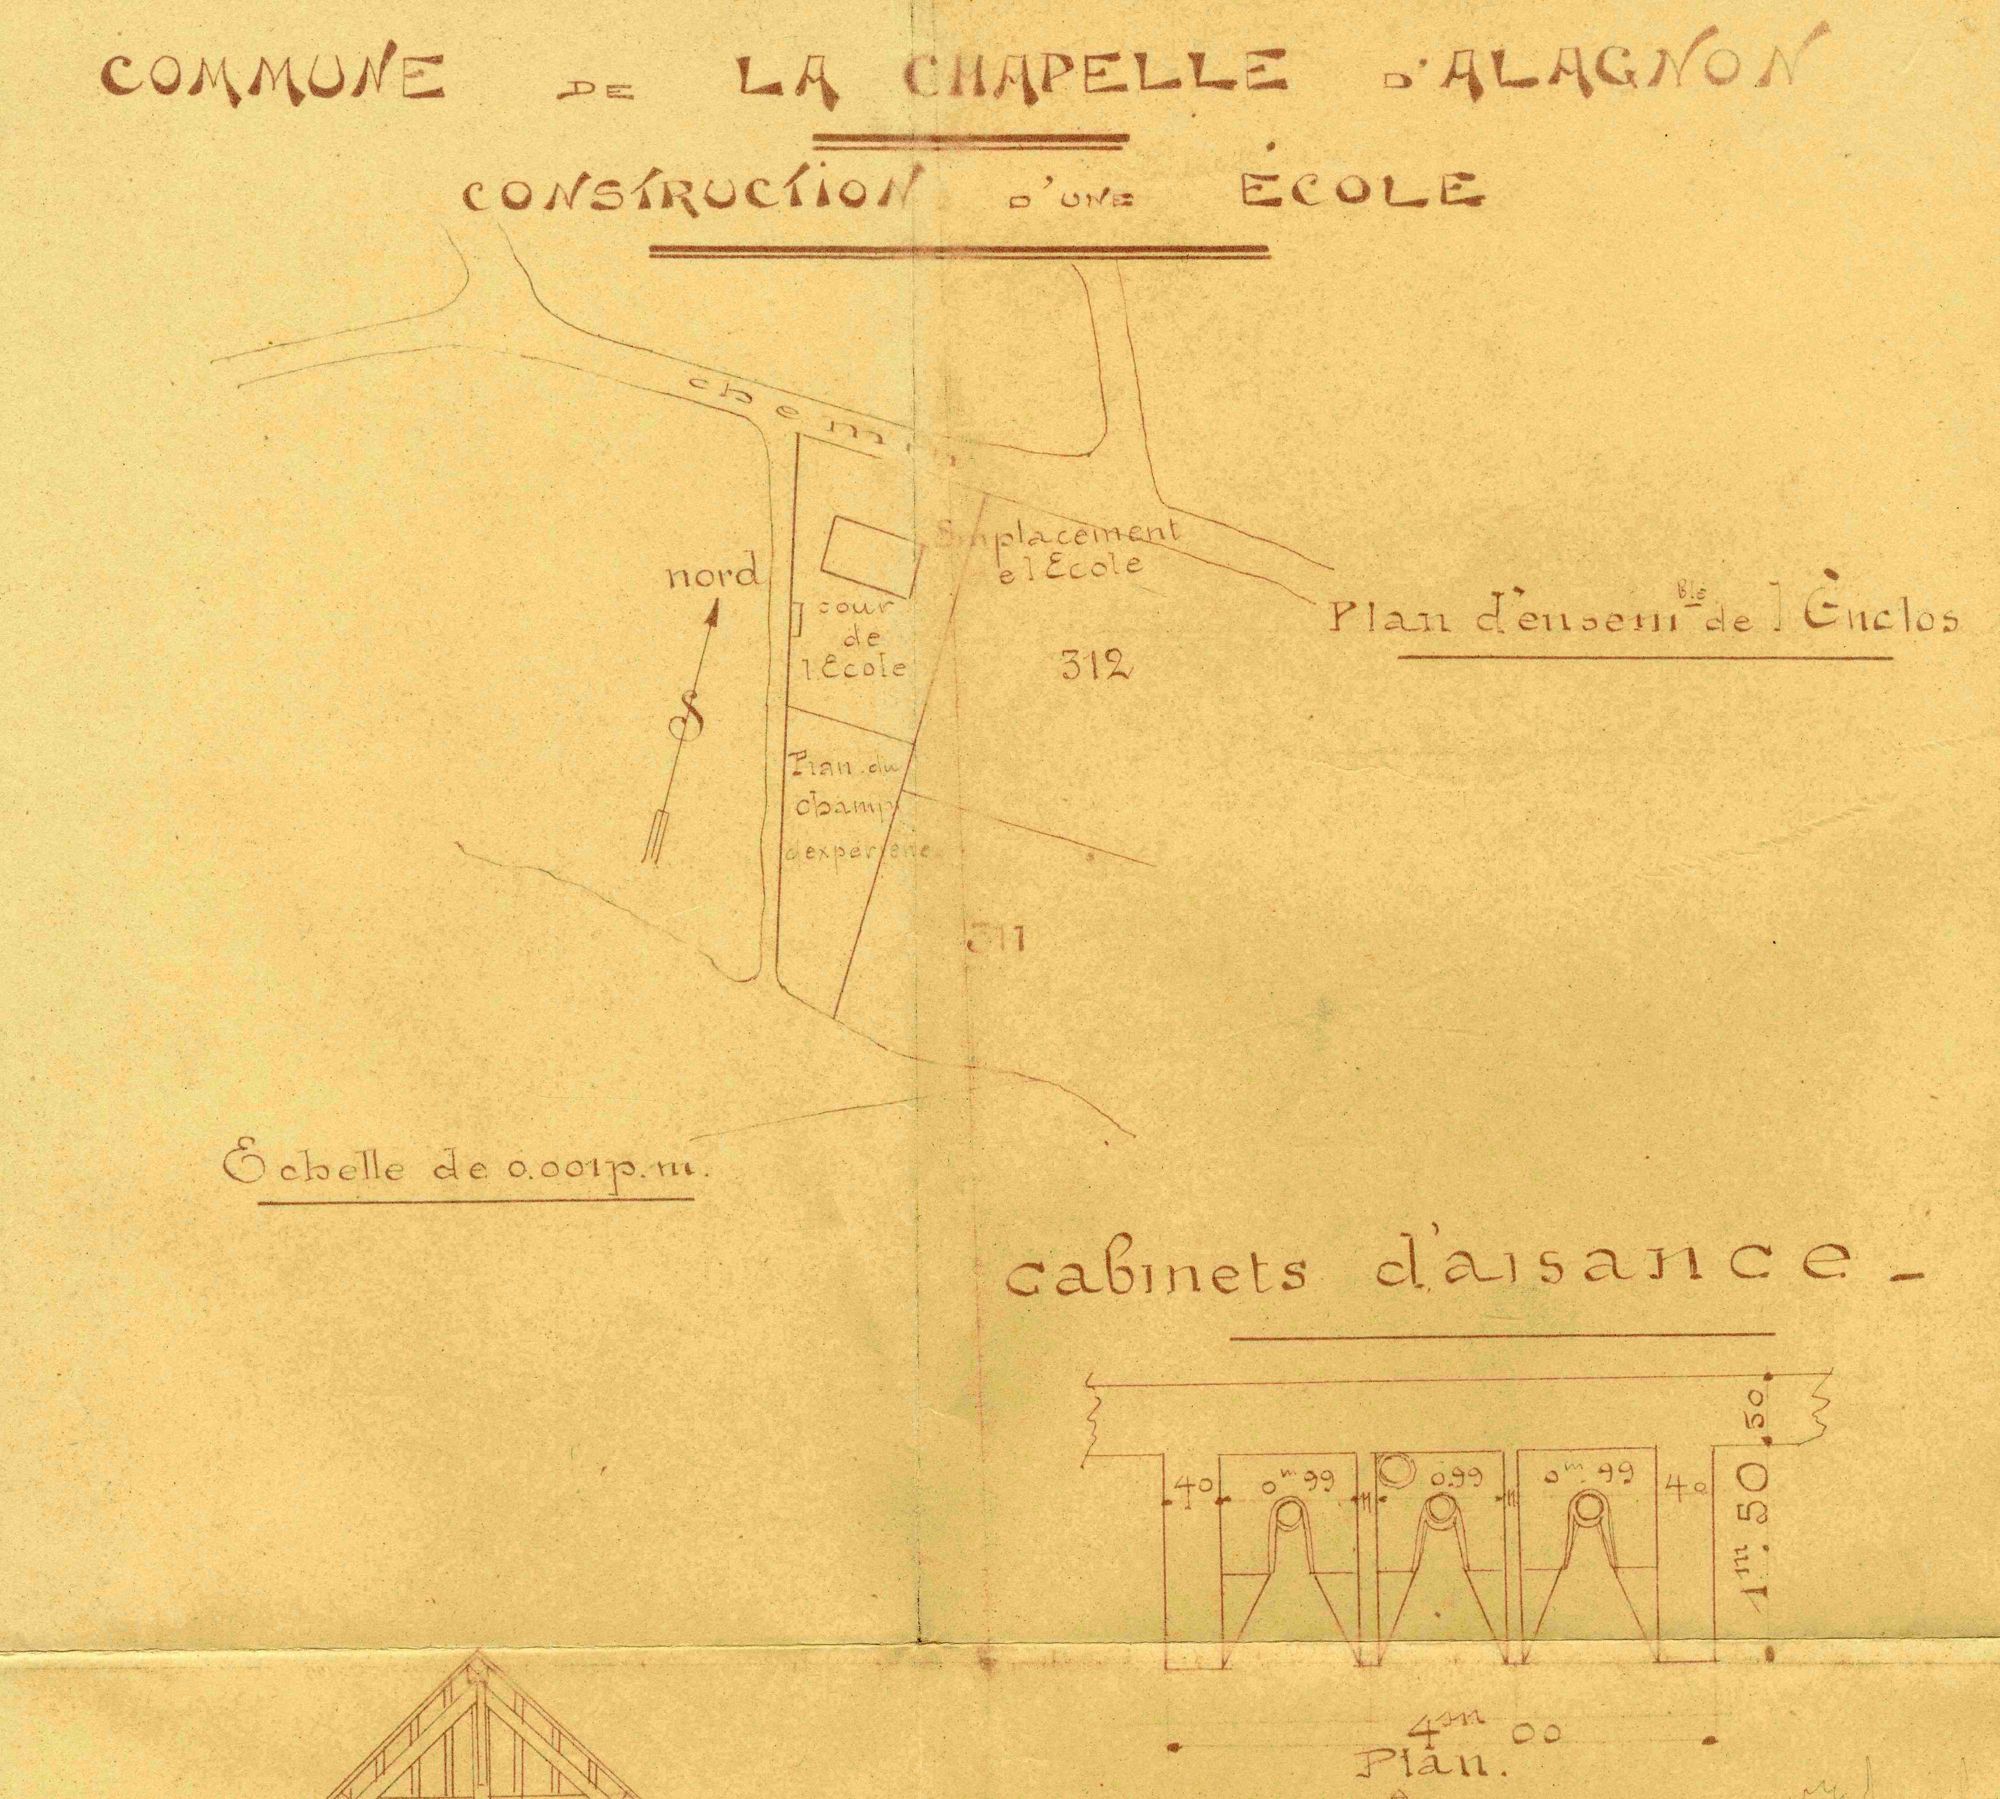 COMMUNE DE LA CHAPELLE D'ALAGNON
CONSTRUCTION D'UNE ÉCOLE
chemin
Emplacement
e l Ecole
nord
cour
de
l Ecole
312
Plan d'ensem ble de l Enclos
Plan du
champ
dexperienc
311
Echelle de 0.001 p.m.
cabinets d'aisance -
50
40 0m99 11 0.99 11 0m.99 40
1m.50
4m 00
Plan.